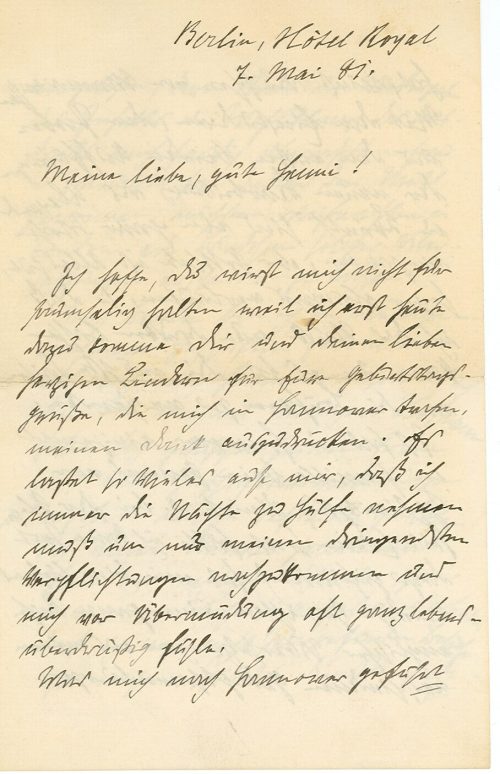 Berlin, Hôtel Royal
7. Mai 81.
Meine liebe, gute Henni!
Ich hoffe, du wirst mich nicht für
saumselig halten weil ich erst heute
dazu komme dir und deinen lieben
herzigen Kindern für Eure Geburtstags-
grüße, die mich in Hannover trafen,
meinen Dank auszudrücken. Es
lastet so Vieles auf mir, daß ich
immer die Nächte zu Hülfe nehmen
muß um nur meinen dringendsten
Verpflichtungen nachzukommen und
mich vor Übermüdung oft ganz lebens-
überdrüßig fühle.
Was mich nach Hannover geführt